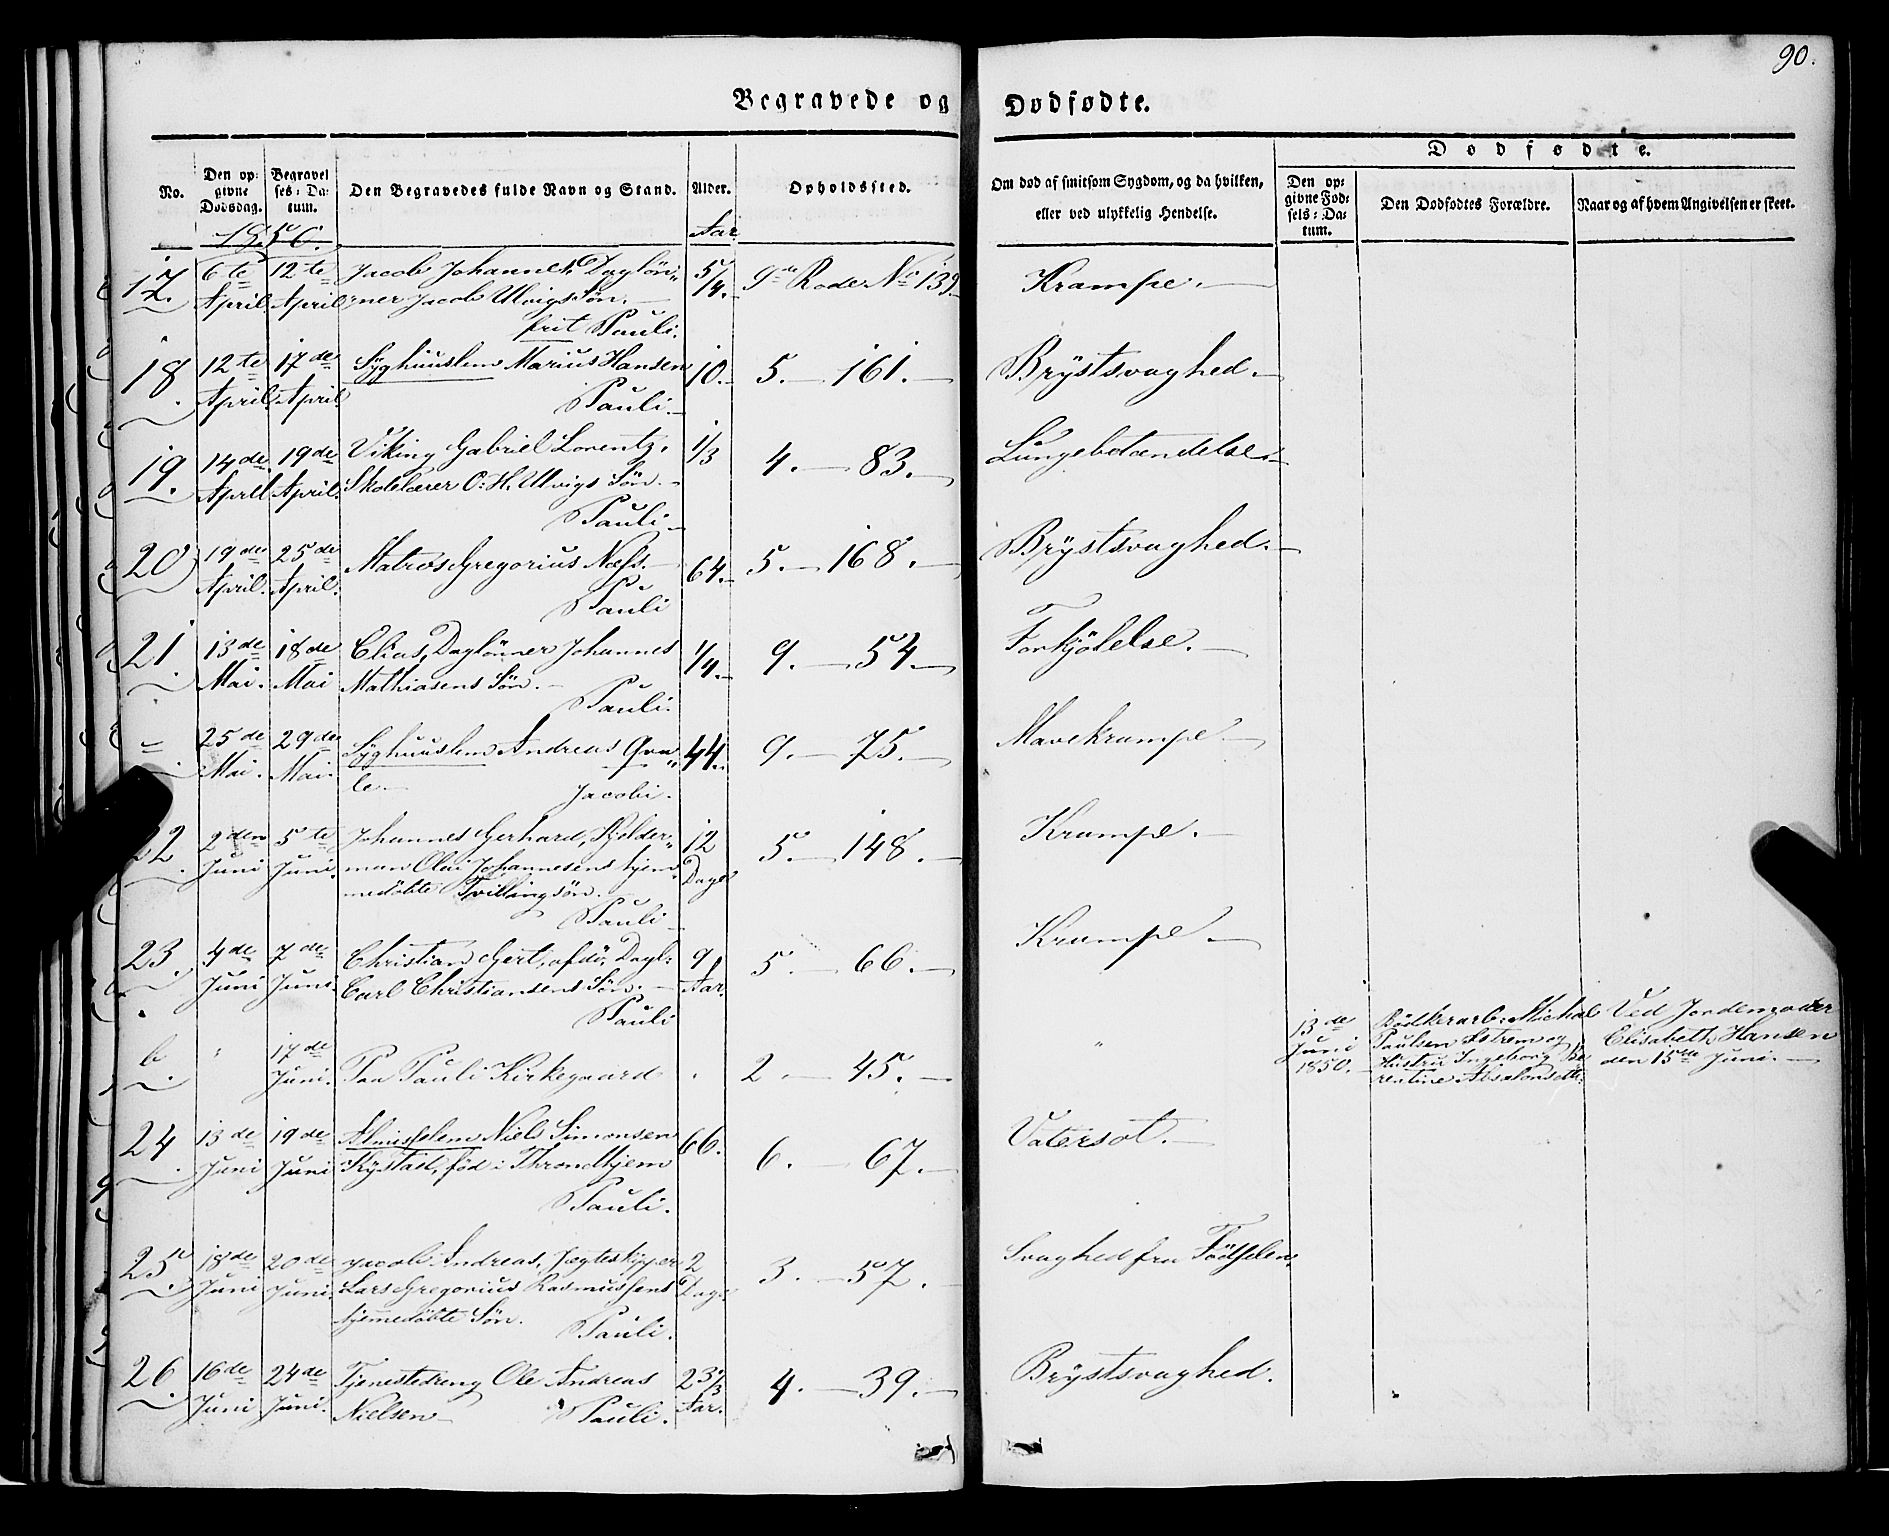 90.
Begravede og Dødfødte.
No.
Den op-
givne
Dødsdag.
Begravel
ses-Da-
tum.
Den Begravedes fulde Navn og Stand.
Alder.
Opholdssted.
Om død af smitsom Sygdom, og da hvilken,
eller ved ulykkelig Hendelse.
Dødfødte.
Den op-
givne Fød-
sels-Da-
tum.
Den Dødfødtes Forældre.
Naar og af hvem Angivelsen er skeet.
1850.
Aar
17. 6te April 12te April Jacob Johannes, Daglön-
ner Jacob Ulvigs Sön.
frit Pauli. 5/4. 9de Rode No 139 Krampe.
18. 12te April. 17de April. Syghuuslem Marius Hansen
Pauli. 10. 5. 161. Brystsvaghed.
19. 14de April 19de April. Viking Gabriel Lorentz,
Skolelærer O. H. Ulvigs Sön.
Pauli. 1/3 4. 83. Lungebetændelse.
20 19de April. 25de April. Matros Gregorius Næss.
Pauli 64. 5. 168. Brystsvaghed.
21. 13de Mai. 18de Mai Elias, Daglönner Johannes
Mathiasens Sön.
Pauli. 1/4. 9. 54. Forkjölelse.
" 25de Mai. 29de Mai. Syghuuslem Andreas Qva-
le.
Jacobi. 44. 9. 75. Mavekrampe.
22. 2den Juni 5te Juni. Johannes Gerhard, Skolder-
man Olai Johannesens hjem-
medöbte Tvillingsön.
Pauli 12 Dage 5. 148. Krampe.
23. 4de Juni 7de Juni. Christian Gert, afdö. Dagl:
Carl Christiansens Sön.
Pauli 9 Aar. 5. 66. Krampe.
b. " 17de Juni. Paa Pauli Kirkegaard 2 45. "
13de
Juni
1850.
Bödkerarb: Michal
Paulsen Østrem og
Hustru Ingeborg Be
rentine Absalonsdtr.
Ved Jordemoder
Elisabeth Hansen
den 15de Juni.
24. 13de Juni 19de Juni Almisselem Niels Simonsen
Kystad, föd i Throndhjem
Pauli. 66. 6. 67. Vatersot.
25. 18de Juni 20de Juni. Jacob Andreas, Jægteskipper
Lars Gregorius Rasmussens
hjemmedöbte Sön.
Pauli. 2 Dage 3. 57. Svaghed fra Födselen.
26. 16de Juni 24de Juni. Tjenestedreng Ole Andreas
Nielsen Pauli. Aar. 4. 39. Brystsvaghed.